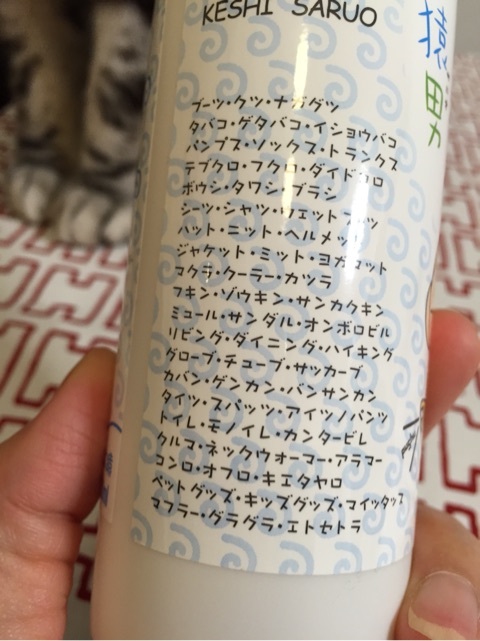 KESHI SARUO
猿男
ブーツ・クツ・ナガグツ
タバコ・ゲタバコ・イショウバコ
パンプス・ソックス・トランクス
テブクロ・フクロ・ダイドコロ
ボウシ・タワシ・ブラシ
シーツ・シャツ・ウェットスーツ
ハット・ニット・ヘルメット
ジャケット・ミット・ヨガマット
マクラ・クーラー・カツラ
フキン・ゾウキン・サンカクキン
ミュール・サンダル・オンボロビル
リビング・ダイニング・ハイキング
グローブ・チューブ・サッカーブ
カバン・ゲンカン・バンサンカン
タイツ・スパッツ・アイツノパンツ
トイレ・モノイレ・カンタービレ
クルマ・ネックウォーマー・アラマー
コンロ・オフロ・キエタヤロ
ペットグッズ・キッズグッズ・マイッタッス
マフラー・グラグラ・エトセトラ